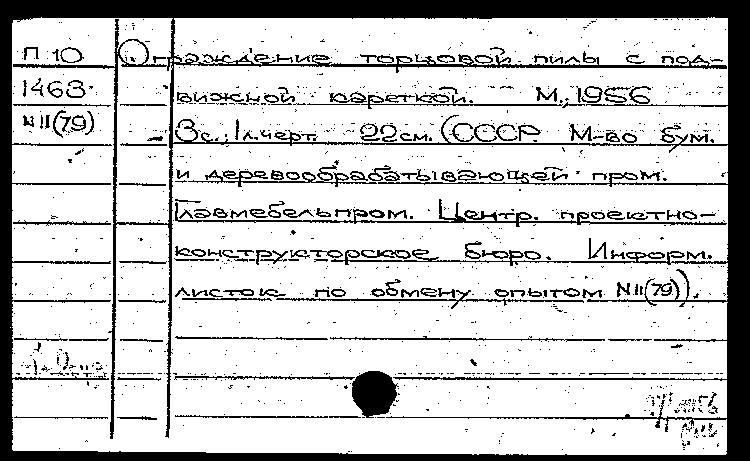 П 10 Ограждение торцовой пилы с под-
1463 вижной кареткой. М., 1956
N 11(79) - 3с.; 1л.черт. 22см. (СССР. М-во бум.
и деревообрабатывающей пром.
Главмебельпром. Центр. проектно-
конструкторское бюро. Информ.
листок по обмену опытом N 11(79)).